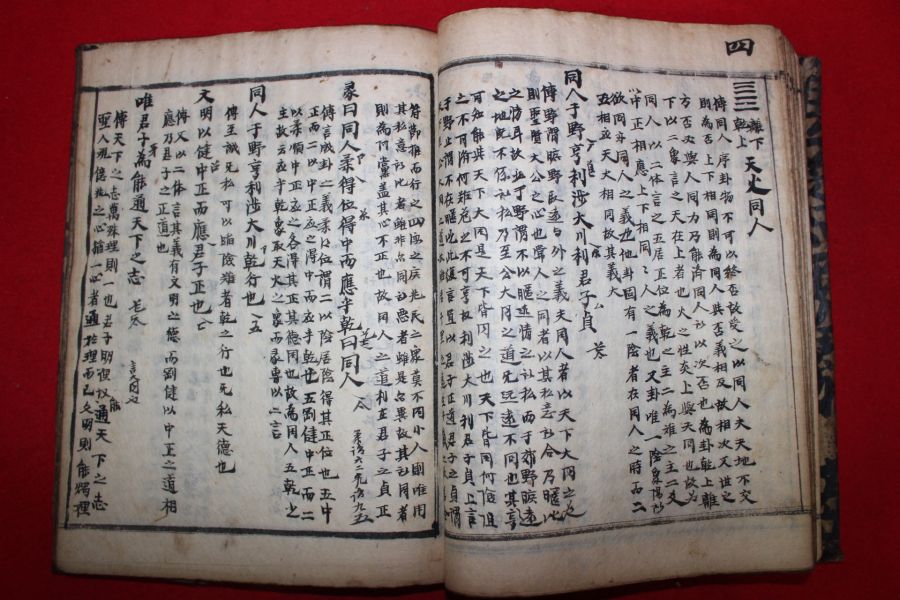 四
離下乾上 天火同人
傳同人序卦物不可以終否故受之以同人夫天地不交
則為否上下相同則為同人與否義相反故相次又世之
方否必與人同力乃能濟同人所以次否也為卦乾上離
下以二象言之天在上者也火之性炎上與天同也故為
同人以二体言之五居正位為乾之主二為離之主二爻
以中正相應上下相同同人之義也又卦唯一陰衆陽所
欲同亦同人之義也他卦固有一陰者在同人之時而二
五相應天火相同故其義大
同人于野亨利涉大川利君子貞
傳野謂曠野取遠與外之義夫同人者以天下大同之道
則聖賢大公之心也常人之同者以其私意所合乃暱比
之情耳故必于野謂不以暱近情之所私而于郊野曠遠
之地既不係所私乃至公大同之道无遠不同也其亨
可知能與天下大同是天下皆同之也天下皆同何險阻
之不可濟何艱危之不可亨故利涉大川利君子貞上言
于野止謂不在暱比此復言宜以君子正道君子之貞謂
符節推而行之四海之廣兆民之衆莫不同小人則唯用
其私意所比者雖非亦同所惡者雖是亦異故其所同者
則為阿黨蓋其心不正也故同人之道利在君子之貞正
彖曰同人柔得位得中而應乎乾曰同人
傳言成卦之義柔得位謂二以陰居陰得其正位也五中
正而二以中正應之得中而應乎乾也五剛健中正而二
以柔順中正應之各得其正其德同也故為同人五乾之
主故云應乎乾象取天火之象而彖專以二言
同人于野亨利涉大川乾行也
傳至誠无私可以蹈險難者乾之行也无私天德也
文明以健中正而應君子正也
傳又以二体言其義有文明之德而剛健以中正之道相
應乃君子之正道也
唯君子為能通天下之志
傳天下之志萬殊理則一也君子明理故能通天下之志
聖人視億兆之心猶一心者通於理而已文明則能燭理